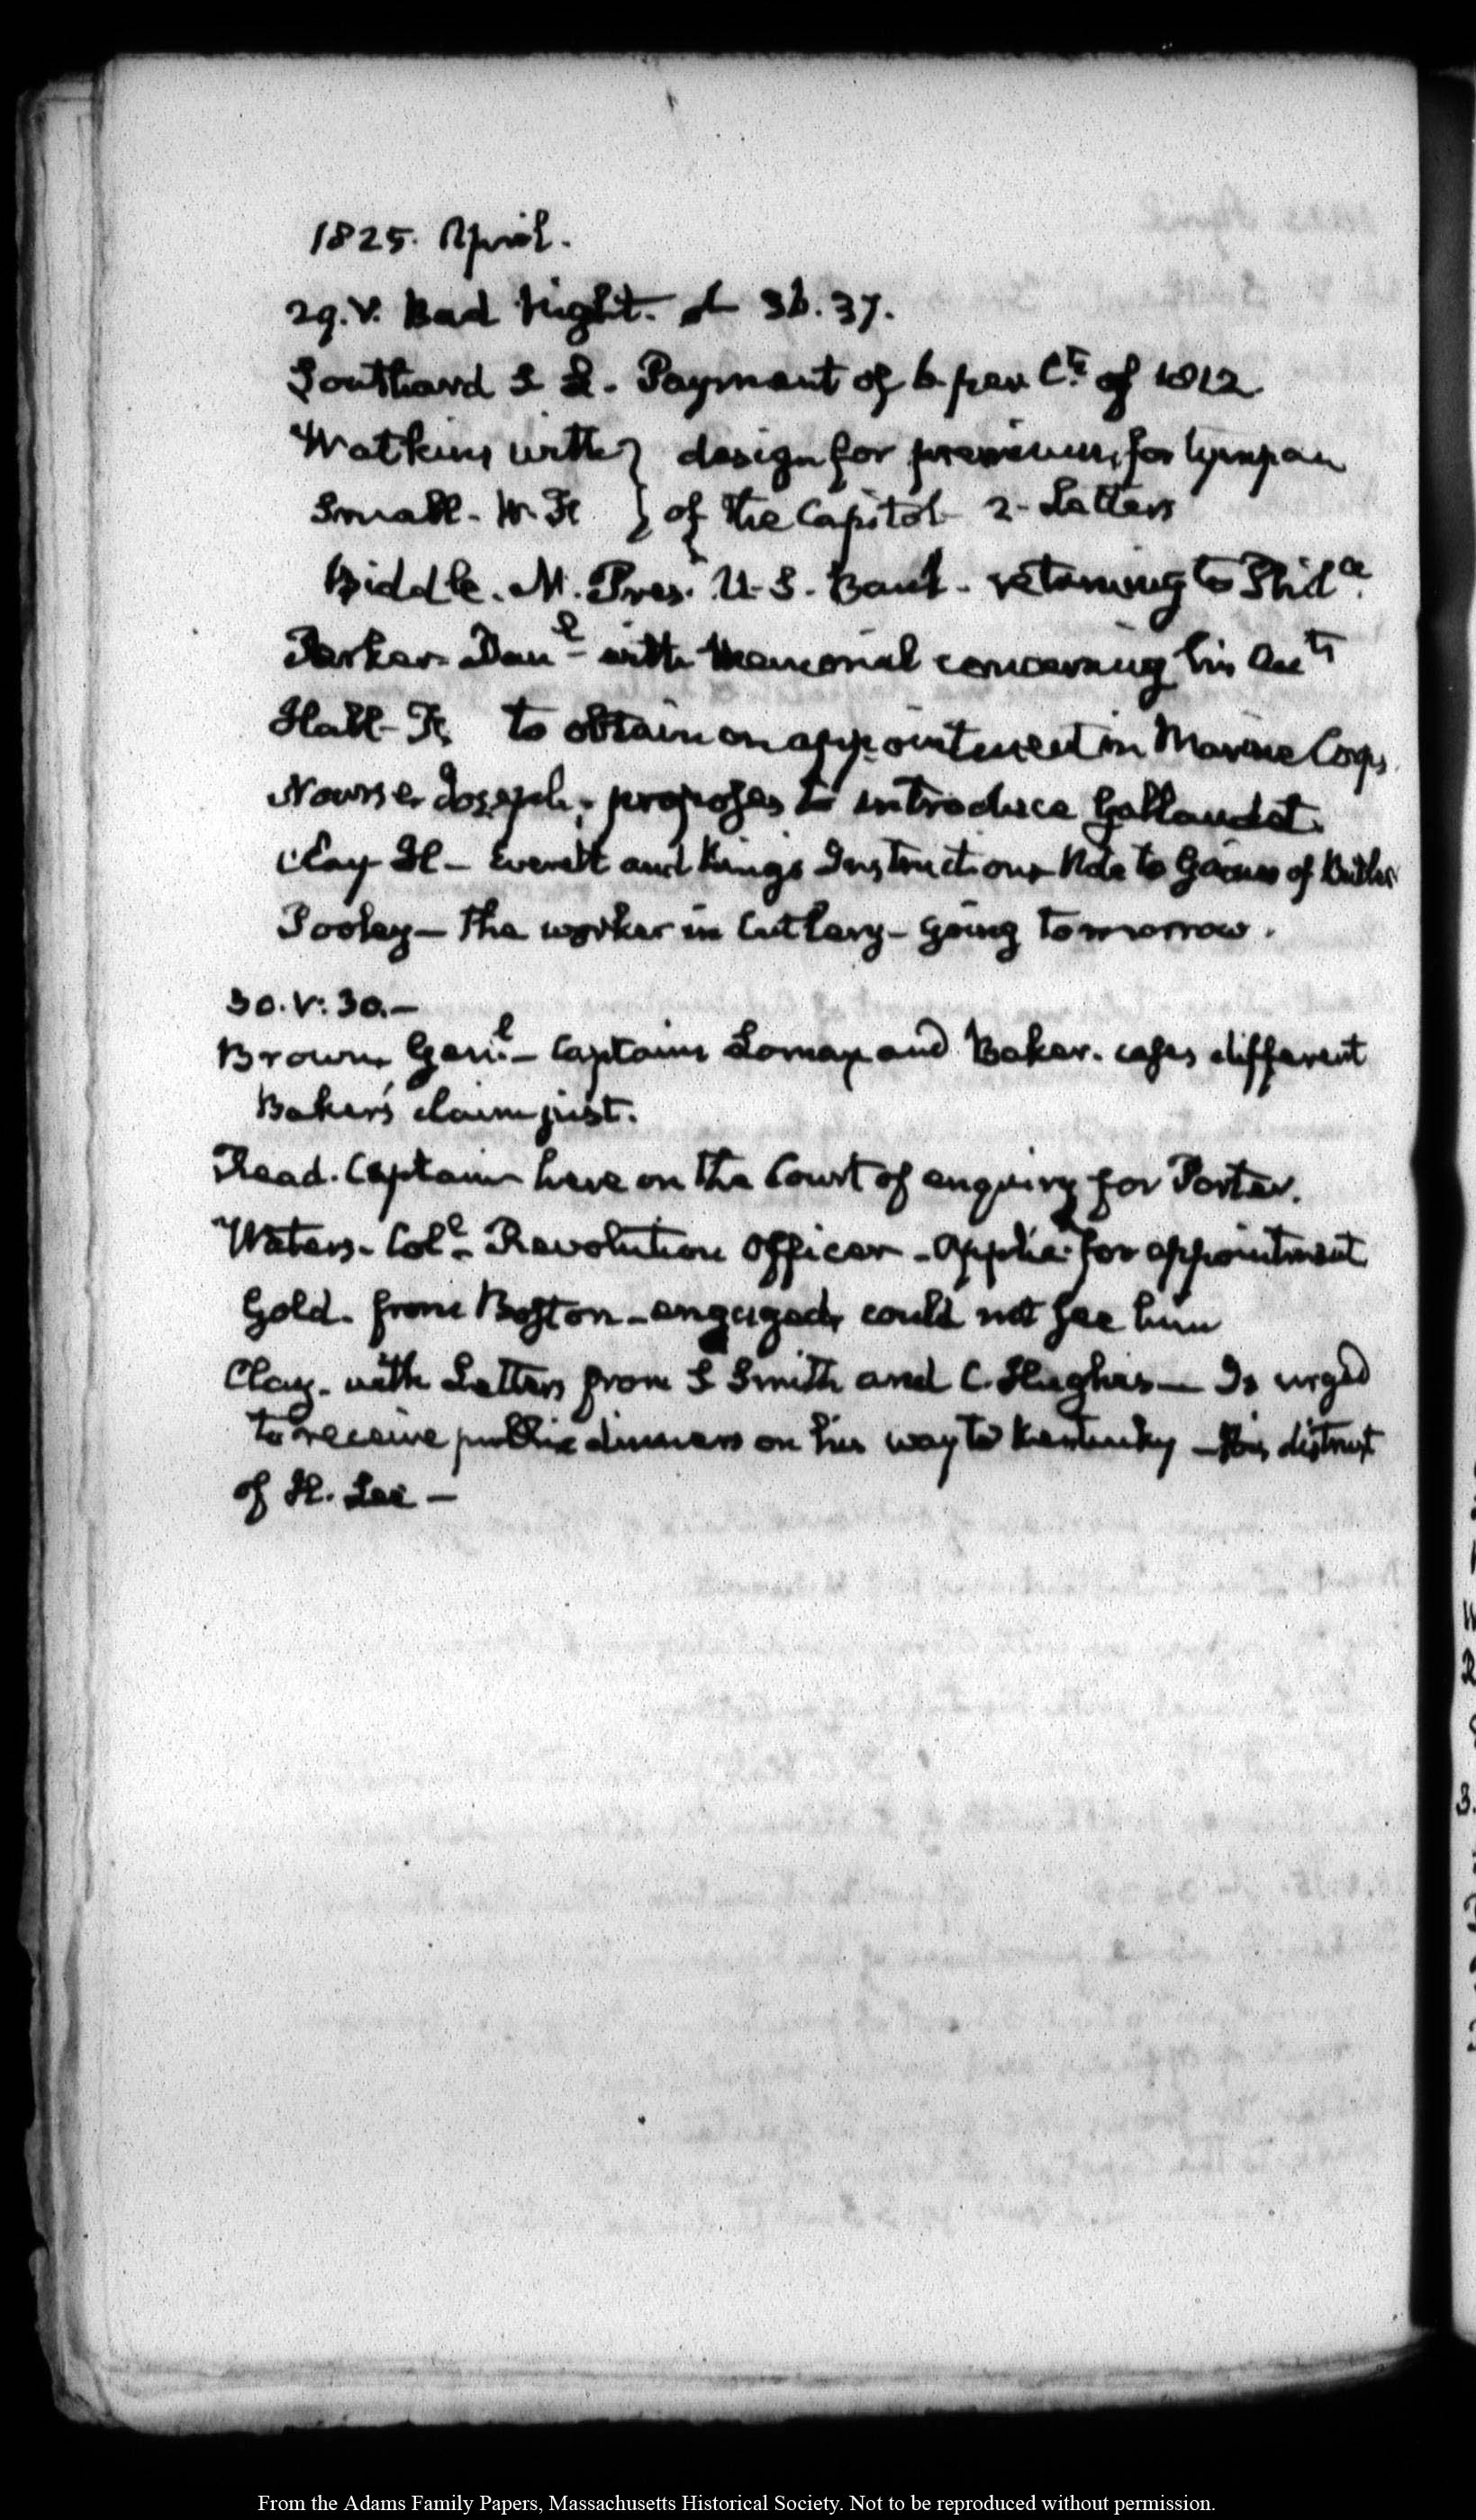 1825. April.
29. V. Bad Night. 3b. 37.
Southard S L. Payment of 6 per Ct. of 1812
Watkins with } design for premium, for tympan
Small. W. F. } of the Capitol 2. Letters
Biddle. N. Pres. U. S. Bank. returning to Phila.
Parker. Danl. with Memorial concerning his Accts
Hall. F. to obtain an appointment in Marine Corps.
Nourse Joseph, proposes to introduce Gallaudet.
Clay H— Everett and Kings Instructions Note to Gaines of Butler
Pooley— The worker in Cutlery— going tomorrow.
30. V: 30.—
Brown, Genl.— Captains Lomax and Baker. cases different
Baker's claim just.
Read. Captain here on the Court of enquiry for Porter.
Waters. Coll. Revolution Officer— Applies for appointment
Gold. from Boston— engaged, could not see him
Clay. with Letters from S Smith and C. Hughes— Is urged
to receive public dinners on his way to Kentucky— His distrust
of H. Lee—
From the Adams Family Papers, Massachusetts Historical Society. Not to be reproduced without permission.